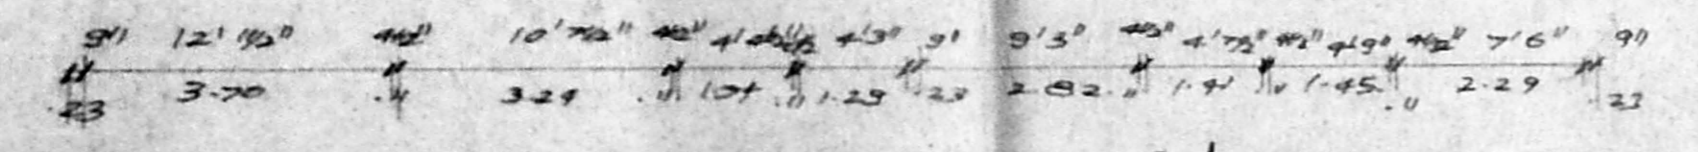 9" 12' 1½" 4½" 10' 7½" 4½" 4'3" 9" 9'3" 4½" 4'7½" 4½" 4'9" 4½" 7'6" 9"
.23 3.70 .11 3.24 .11 .11 1.29 .23 2.82 .11 1.41 .11 1.45 .11 2.29 .23